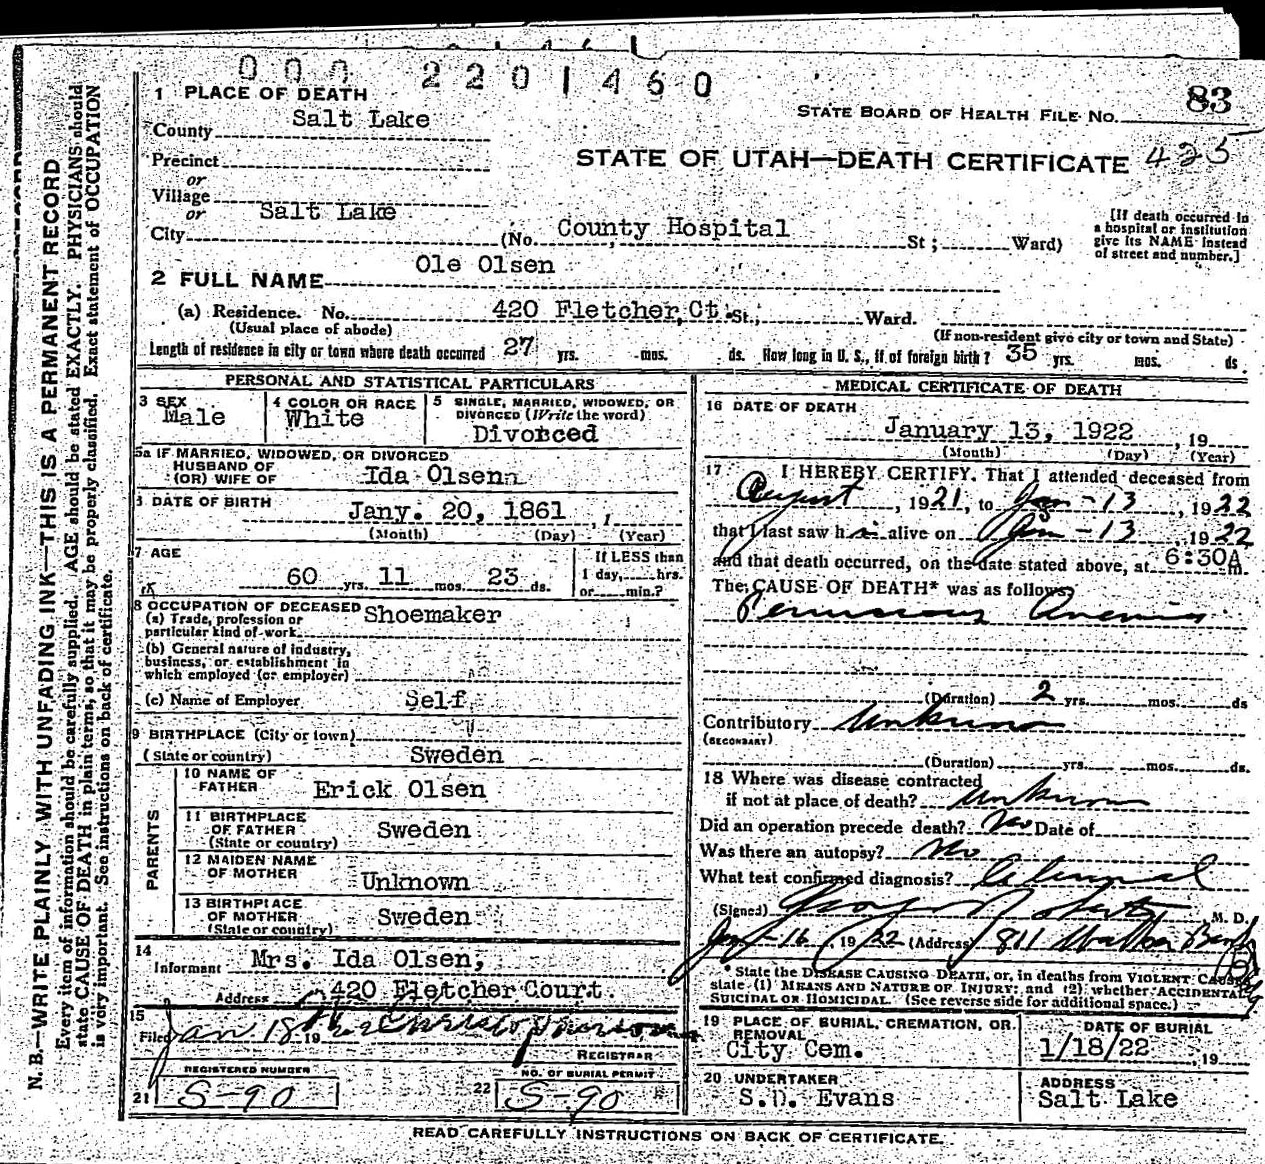 000 2201460
83
1 PLACE OF DEATH
STATE BOARD OF HEALTH FILE NO.
County Salt Lake
Precinct
STATE OF UTAH—DEATH CERTIFICATE 425
or
Village
or
City Salt Lake (No. County Hospital St; Ward)
[If death occurred in
a hospital or institution
give its NAME instead
of street and number.]
2 FULL NAME Ole Olsen
(a) Residence. No. 420 Fletcher Ct. St., Ward.
(Usual place of abode) (If non-resident give city or town and State)
Length of residence in city or town where death occurred 27 yrs. mos. ds. How long in U. S., if of foreign birth? 35 yrs. mos. ds.
PERSONAL AND STATISTICAL PARTICULARS
3 SEX Male
4 COLOR OR RACE White
5 SINGLE, MARRIED, WIDOWED, OR
DIVORCED (Write the word)
Divorced
5a IF MARRIED, WIDOWED, OR DIVORCED
HUSBAND OF
(OR) WIFE OF Ida Olsen
6 DATE OF BIRTH
Jany. 20, 1861
(Month) (Day) (Year)
7 AGE
60 yrs. 11 mos. 23 ds.
If LESS than
1 day, hrs.
or min.?
8 OCCUPATION OF DECEASED
(a) Trade, profession or
particular kind of work Shoemaker
(b) General nature of industry,
business, or establishment in
which employed (or employer)
(c) Name of Employer Self
9 BIRTHPLACE (City or town)
(State or country) Sweden
PARENTS
10 NAME OF
FATHER Erick Olsen
11 BIRTHPLACE
OF FATHER Sweden
(State or country)
12 MAIDEN NAME
OF MOTHER Unknown
13 BIRTHPLACE
OF MOTHER Sweden
(State or country)
14
Informant Mrs. Ida Olsen,
Address 420 Fletcher Court.
15
Filed Jan 18 19
REGISTRAR
REGISTERED NUMBER
21 S-90
NO. OF BURIAL PERMIT
22 S-90
MEDICAL CERTIFICATE OF DEATH
16 DATE OF DEATH
January 13, 1922, 19
(Month) (Day) (Year)
17 I HEREBY CERTIFY, That I attended deceased from
August, 1921, to Jan-13, 1922
that I last saw him alive on Jan-13 1922
and that death occurred, on the date stated above, at 6:30A m.
The CAUSE OF DEATH* was as follows:
Pernicious Anemia
(Duration) 2 yrs. mos. ds
Contributory Unknown
(SECONDARY)
(Duration) yrs. mos. ds.
18 Where was disease contracted
if not at place of death? Unknown
Did an operation precede death? No Date of
Was there an autopsy? No
What test confirmed diagnosis? Clinical
(Signed) George Roberts, M. D.
Jan-16, 1922 (Address) 811 Walker Bank
* State the DISEASE CAUSING DEATH, or, in deaths from VIOLENT CAUSES
state (1) MEANS AND NATURE OF INJURY; and (2) whether ACCIDENTAL,
SUICIDAL OR HOMICIDAL. (See reverse side for additional space.)
19 PLACE OF BURIAL, CREMATION, OR
REMOVAL
City Cem.
DATE OF BURIAL
1/18/22, 19
20 UNDERTAKER
S.D. Evans
ADDRESS
Salt Lake
READ CAREFULLY INSTRUCTIONS ON BACK OF CERTIFICATE.
N. B.—WRITE PLAINLY WITH UNFADING INK—THIS IS A PERMANENT RECORD
Every item of information should be carefully supplied. AGE should be stated EXACTLY. PHYSICIANS should
state CAUSE OF DEATH in plain terms, so that it may be properly classified. Exact statement of OCCUPATION
is very important. See instructions on back of certificate.